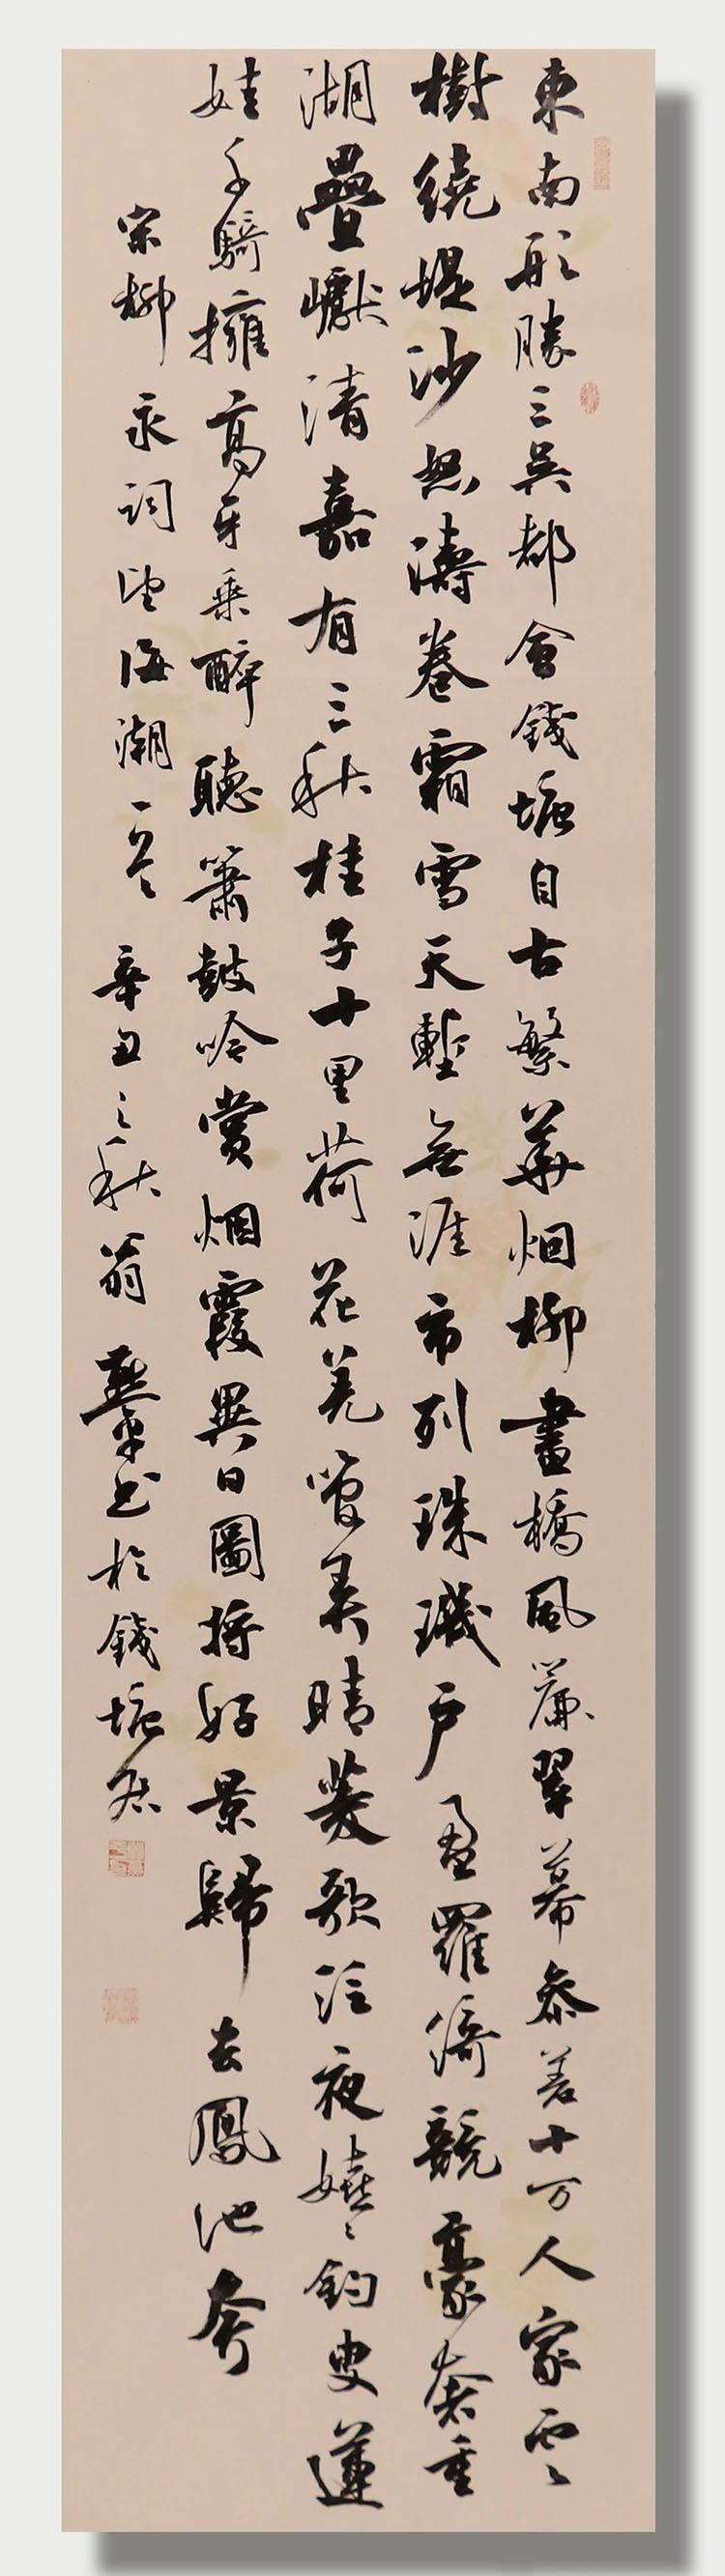 東南形勝三吳都會錢塘自古繁華烟柳畫橋風簾翠幕參差十万人家雲
樹繞堤沙怒濤卷霜雪天塹無涯市列珠璣戶盈羅綺競豪奢重
湖疊巘清嘉有三秋桂子十里荷花羌管弄晴菱歌泛夜嬉嬉釣叟蓮
娃千騎擁高牙乘醉聽簫鼓吟賞烟霞異日圖將好景歸去鳳池夸
宋柳永詞望海潮一首
辛丑之秋翁肇書於錢塘